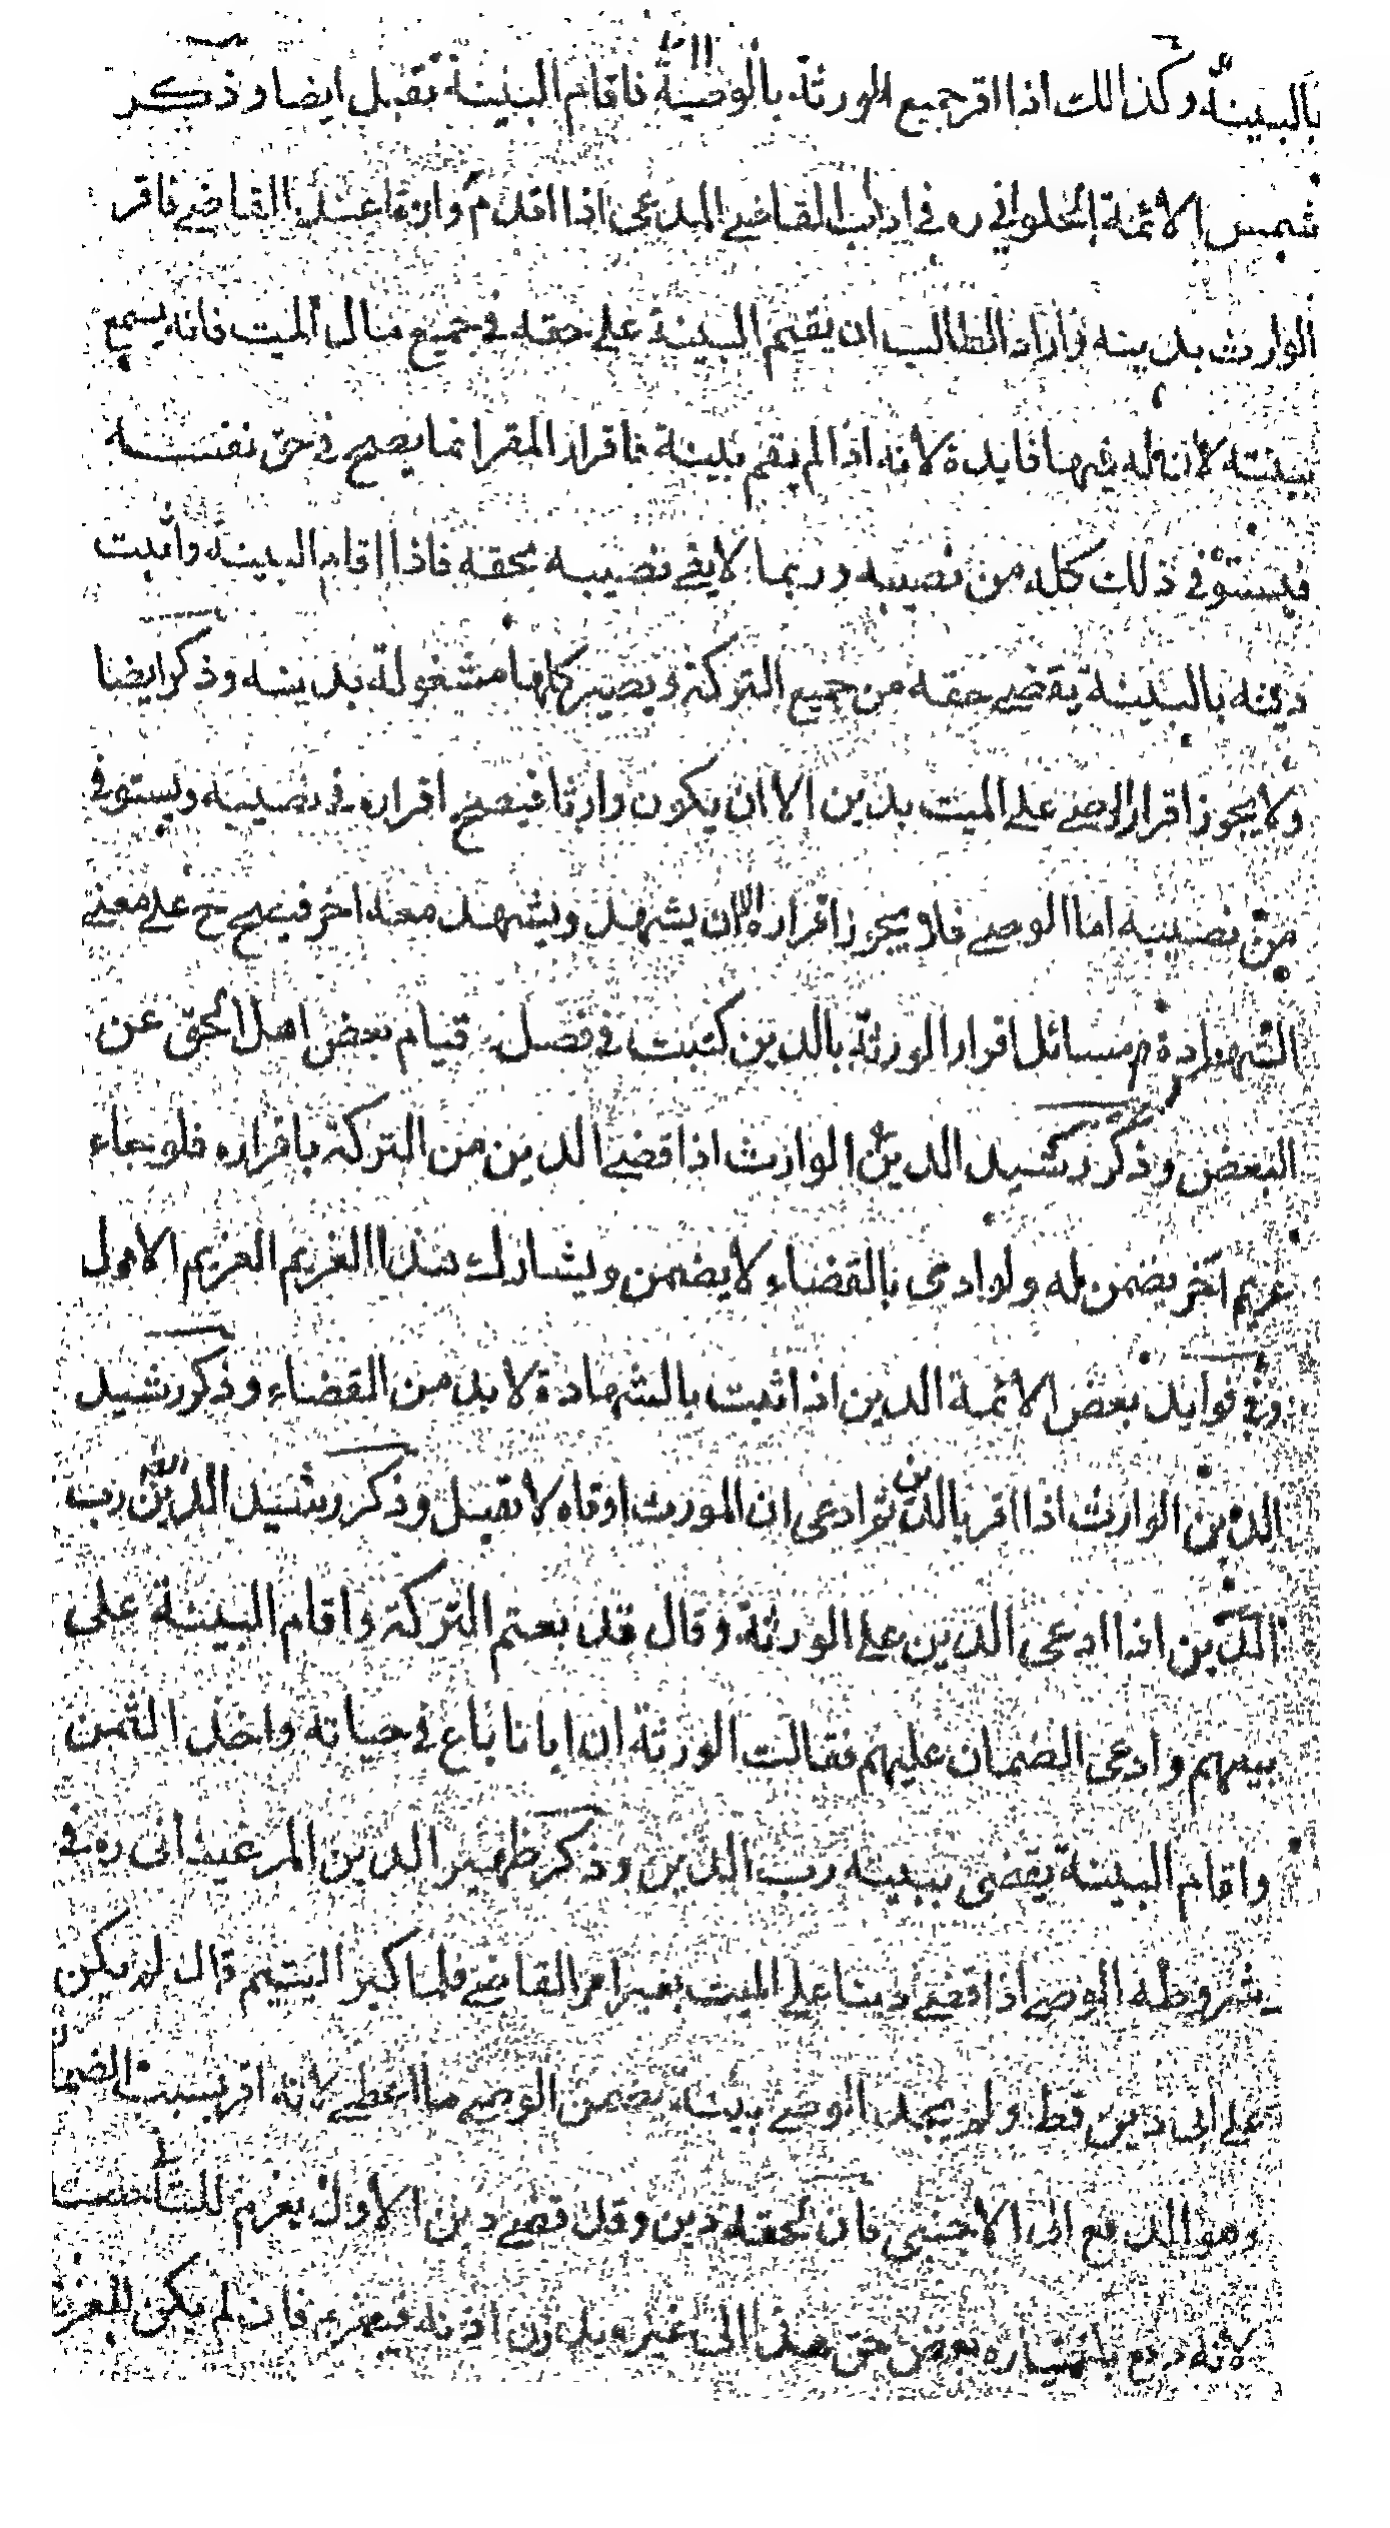 بالبينة وكذالك اذا اقر جميع الورثة بالوصية فاقام البينة تقبل ايضا وذكر
شمس الائمة الحلواني ره في ادب القاضي المدعى اذا اقدم وارثا عند القاضي فاقر
الوارث بدينه واراد الطالب ان يقيم البينة على حقه في جميع مال الميت فانه يسمع
بينته لانه له فيها فايدة لانه اذا لم يقم بينة فاقرار المقر انما يصح في حق نفسه
فيستوفى ذلك كله من نصيبه وربما لا يفي نصيبه بحقه فاذا اقام البينة واثبت
دينه بالبينة يقضي حقه من جميع التركة ويصير كلها مشغولة بدينه وذكر ايضا
ولا يجوز اقرار الوصي على الميت بدين الا ان يكون وارثا فيصح اقراره في نصيبه ويستوفى
من نصيبه اما الوصي فلا يجوز اقراره الا ان يشهد ويشهد معه اخر فيصح ح على معنى
الشهادة م مسائل اقرار الورثة بالدين كتبت في فصل قيام بعض اهل الحق عن
البعض وذكر رشيد الدين الوارث اذا قضى الدين من التركة باقراره فلو جاء
غريم آخر يضمن له ولو ادى بالقضاء لا يضمن ويشارك هذا الغريم الغريم الاول
وفي فوايد بعض الائمة الدين اذا ثبت بالشهادة لا بد من القضاء وذكر رشيد
الدين الوارث اذا اقر بالدين ثم ادعى ان المورث اوفاه لا تقبل وذكر رشيد الدين رب
الدين اذا ادعى الدين على الورثة وقال قد بعتم التركة واقام البينة على
بيعهم وادعى الضمان عليهم فقالت الورثة ان ابانا باع في حياته واخذ الثمن
واقام البينة يقضى ببينة رب الدين وذكر ظهير الدين المرغينانى ره في
شروطه الوصي اذا قضى دينا على الميت بغير امر القاضي فلما كبر اليتيم قال لم يكن
على ابى دين قط ولم يجد الوصي بينة يضمن الوصي ما اعطى لانه اقر بسبب الضما
وهو الدفع الى الاجنبي فان لحقه دين وقد قضى دين الاول يغرم للثانى
لانه دفع باختياره بعض حق هذا الى غيره بدون اذنه فيغرم فان لم يكن للغر